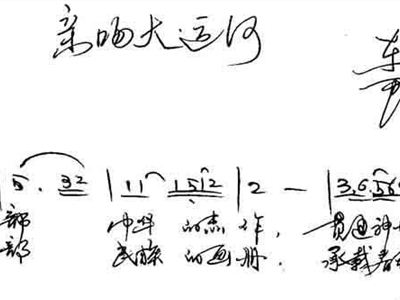 亲吻大运河
5. 32 | 11 1512 | 2 — | 3.6.56
部 中华 的杰作, 贯通神
部 民族 的画册. 承载着